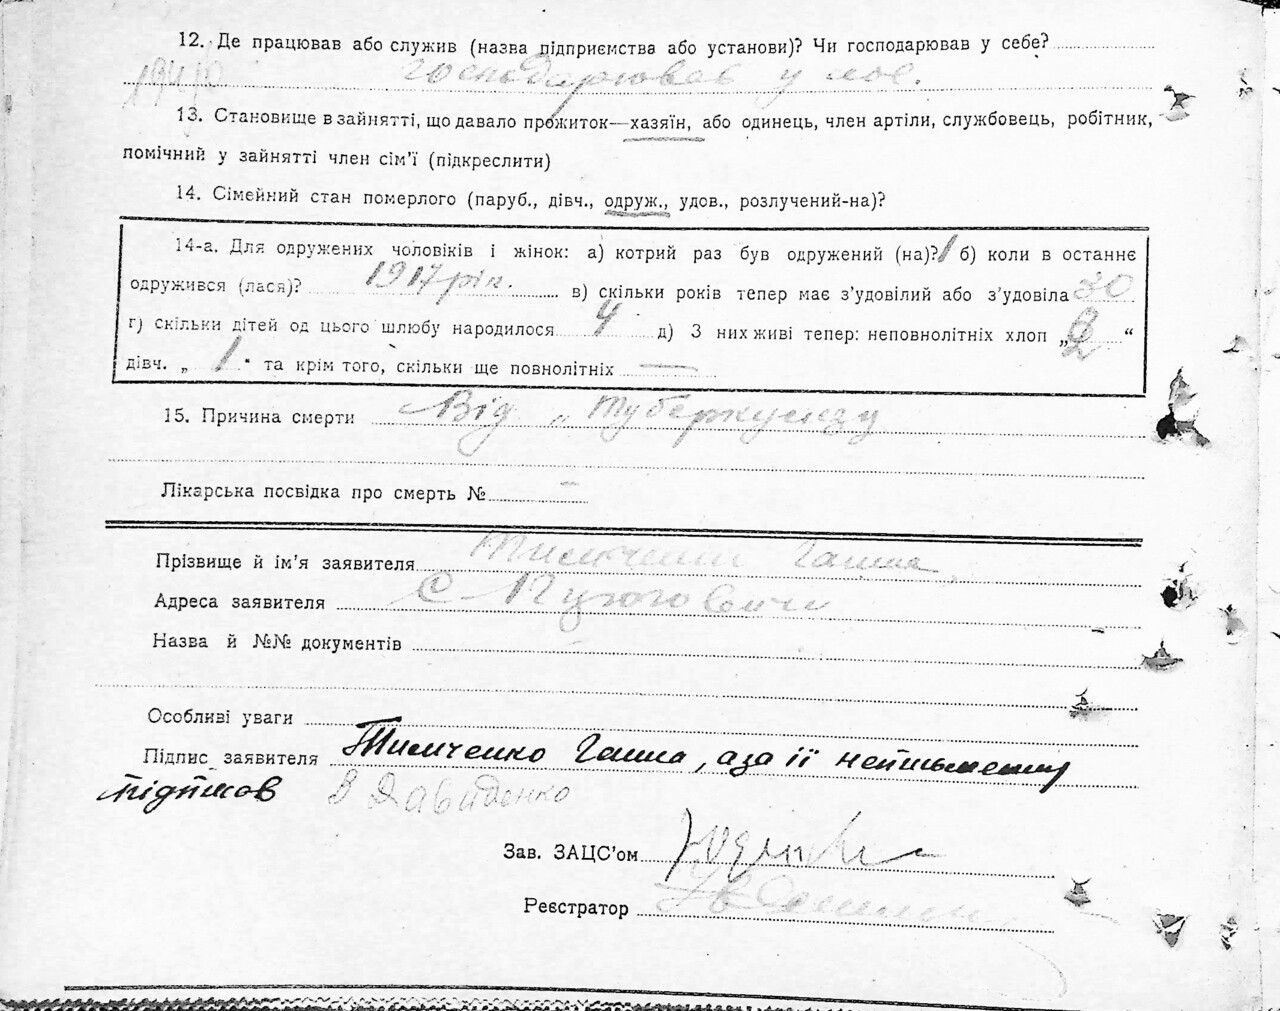 12. Де працював або служив (назва підприємства або установи)? Чи господарював у себе?
господарював у себе.
13. Становище в зайнятті, що давало прожиток—хазяїн, або одинець, член артіли, службовець, робітник,
помічний у зайнятті член сім'ї (підкреслити)
14. Сімейний стан померлого (паруб., дівч., одруж., удов., розлучений-на)?
14-а. Для одружених чоловіків і жінок: а) котрий раз був одружений (на)? 1 б) коли в останнє
одружився (лася)? 1917 рік. в) скільки років тепер має з'удовілий або з'удовіла 30
г) скільки дітей од цього шлюбу народилося 4 д) З них живі тепер: неповнолітніх хлоп „ 2 “
дівч. „ 1 “ та крім того, скільки ще повнолітніх —
15. Причина смерти Від „ Туберкульозу
Лікарська посвідка про смерть № —
Прізвище й ім'я заявителя Тимченко Ганна
Адреса заявителя С
Назва й №№ документів
Особливі уваги
Підпис заявителя Тимченко Ганна, а за її неписьменну
підписав В Давиденко
Зав. ЗАЦС'ом
Реєстратор